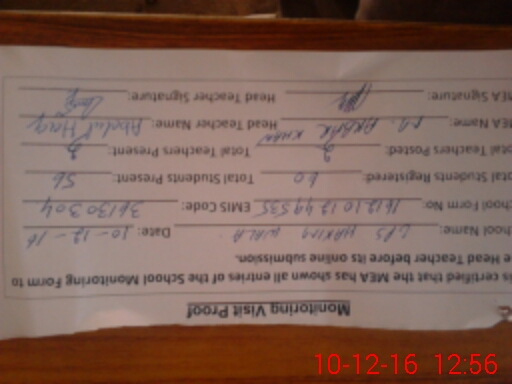 Monitoring Visit Proof
is certified that the MEA has shown all entries of the School Monitoring Form to
e Head Teacher before its online submission.
chool Name: GPS Date: 10-12-16
chool Form No: EMIS Code: 36130304
otal Students Registered: 60 Total Students Present: 56
otal Teachers Posted: 3 Total Teachers Present: 3
MEA Name: M. AKBAR KHAN Head Teacher Name: Abdul Haq
MEA Signature: Head Teacher Signature:
10-12-16 12:56